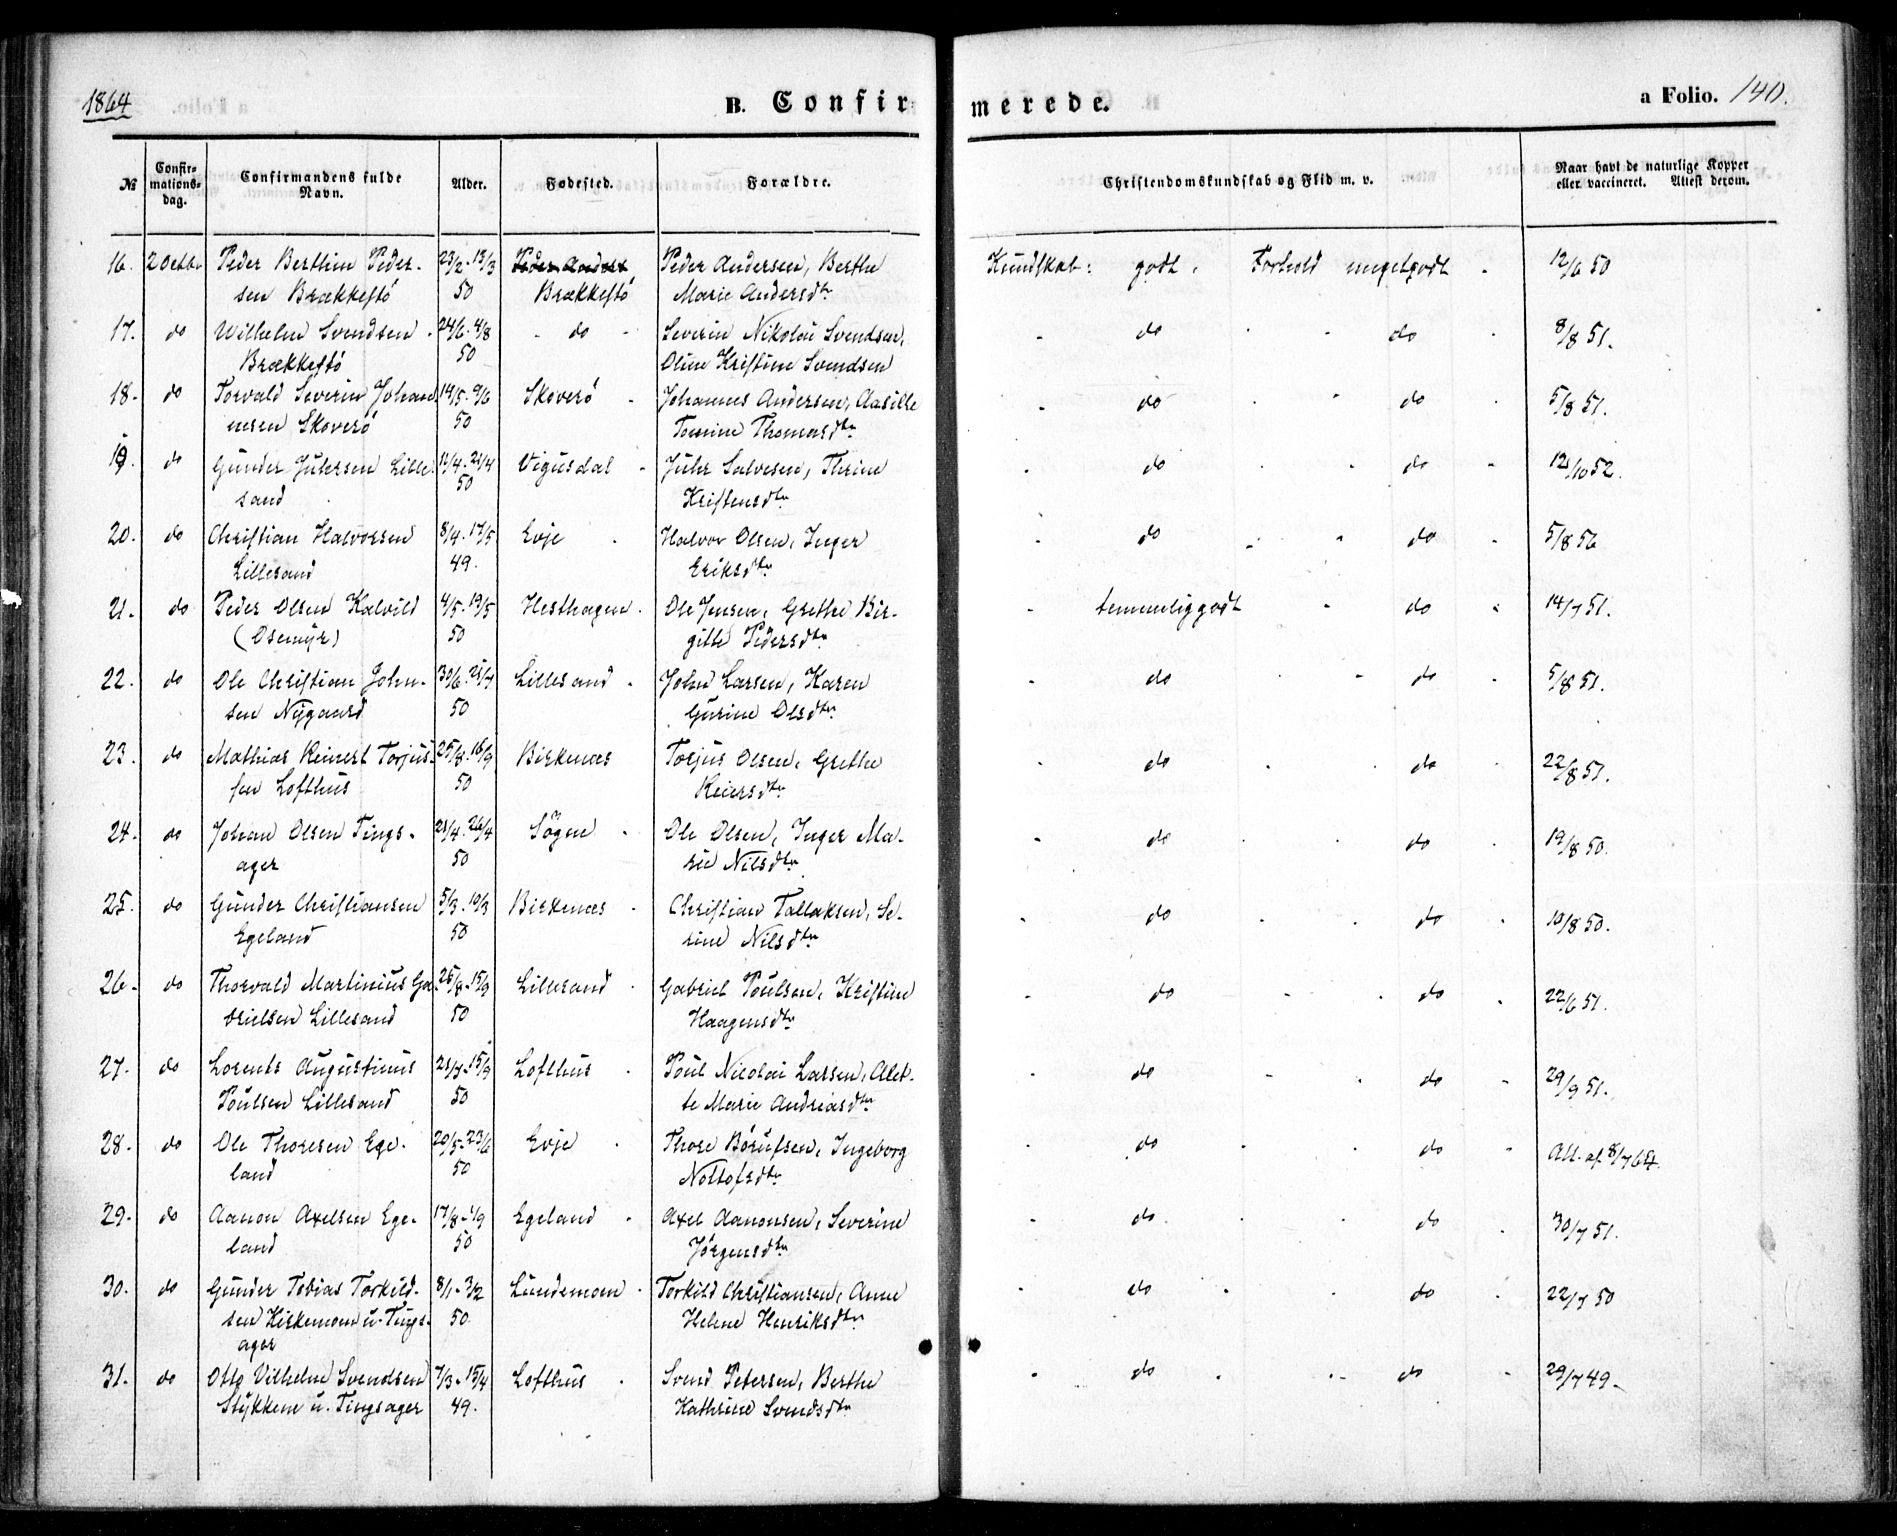 1864 B. Confirmerede. a Folio. 140.
№ Confirmations-dag. Confirmandens fulde Navn. Alder. Fødested. Forældre. Christendomskundskab og Flid m. v. Naar havt de naturlige Kopper eller vaccineret. Attest derom.
16. 2 Octb. Peder Berthin Peder- 23/2. 13/3 Peder Anders Peder Andersen, Berthe Kundskab: godt, Forhold meget godt 12/6 50
sen Brækkestö 50 Brækkestö Marie Andersdtr
17. do Wilhelm Svendsen 24/6. 4/8 do Severin Nikolai Svendsen, do do 8/8 51.
Brækkestö 50 Oline Kristine Svendsen
18. do Torvald Severin Johan- 14/5. 9/6 Skoverö Johannes Andersen, Aasille do do 5/8 51.
nesen Skoverö 50 Tomine Thomasdtr
19. do Gunder Juhrsen Lille- 12/4. 21/4 Vigusdal Juhr Salvesen, Thrine do do 12/10 52.
sand 50 Kristensdtr
20. do Christian Halvorsen 8/4. 17/5 Evje Halvor Olsen, Inger do do 5/8 56
Lillesand 49. Eriksdtr
21. do Peder Olsen Kalvild 4/5. 19/5 Hesthagen Ole Jensen, Grethe Bir- temmelig godt do 14/7 51.
(Osemyr) 50 gitte Pedersdtr
22. do Ole Christian John- 30/6. 21/7 Lillesand John Larsen, Karen do do 5/8 51.
sen Nygaard 50 Gurine Olsdtr
23. do Mathias Reinert Torjus- 25/8. 15/9 Birkenæs Torjus Olsen, Grethe do do 22/8 51.
sen Lofthus 50 Reiersdtr
24. do Johan Olsen Tings- 21/4. 26/4 Sögne Ole Olsen, Inger Ma- do do 19/8 50.
ager 50 rie Nilsdtr
25. do Gunder Christiansen 5/3. 10/3 Birkenæs Christian Tallaksen, Se- do do 10/8 50.
Egeland 50 rine Nilsdtr
26. do Thorvald Martinius Ga- 25/8. 15/9 Lillesand Gabriel Poulsen, Kristine do do 22/6 51.
brielsen Lillesand 50 Haagensdtr
27. do Lorents Augustinus 21/7. 15/9 Lofthus Poul Nicolai Larsen, Alet- do do 29/9 51.
Poulsen Lillesand 50 te Marie Andreasdtr
28. do Ole Thoresen Ege- 20/5. 23/6 Evje Thore Börufsen, Ingeborg do do Att. af 8/7 64.
land 50 Nottofsdtr
29. do Aanon Axelsen Ege- 17/8. 1/9 Egeland Axel Aanonsen, Severine do do 30/7 51.
land 50 Jörgensdtr
30. do Gunder Tobias Torkild- 8/1. 3/2 Lundemoen Torkild Christiansen, Anne do do 22/7 50
sen Kirkemoen u. Tings- 50. Helene Henriksdtr
ager
31. do Otto Vilhelm Svendsen 7/3. 15/4 Lofthus Svend Petersen, Berthe do do 29/7 49
Stykkene u. Tingsager 49. Kathrine Svendsdtr